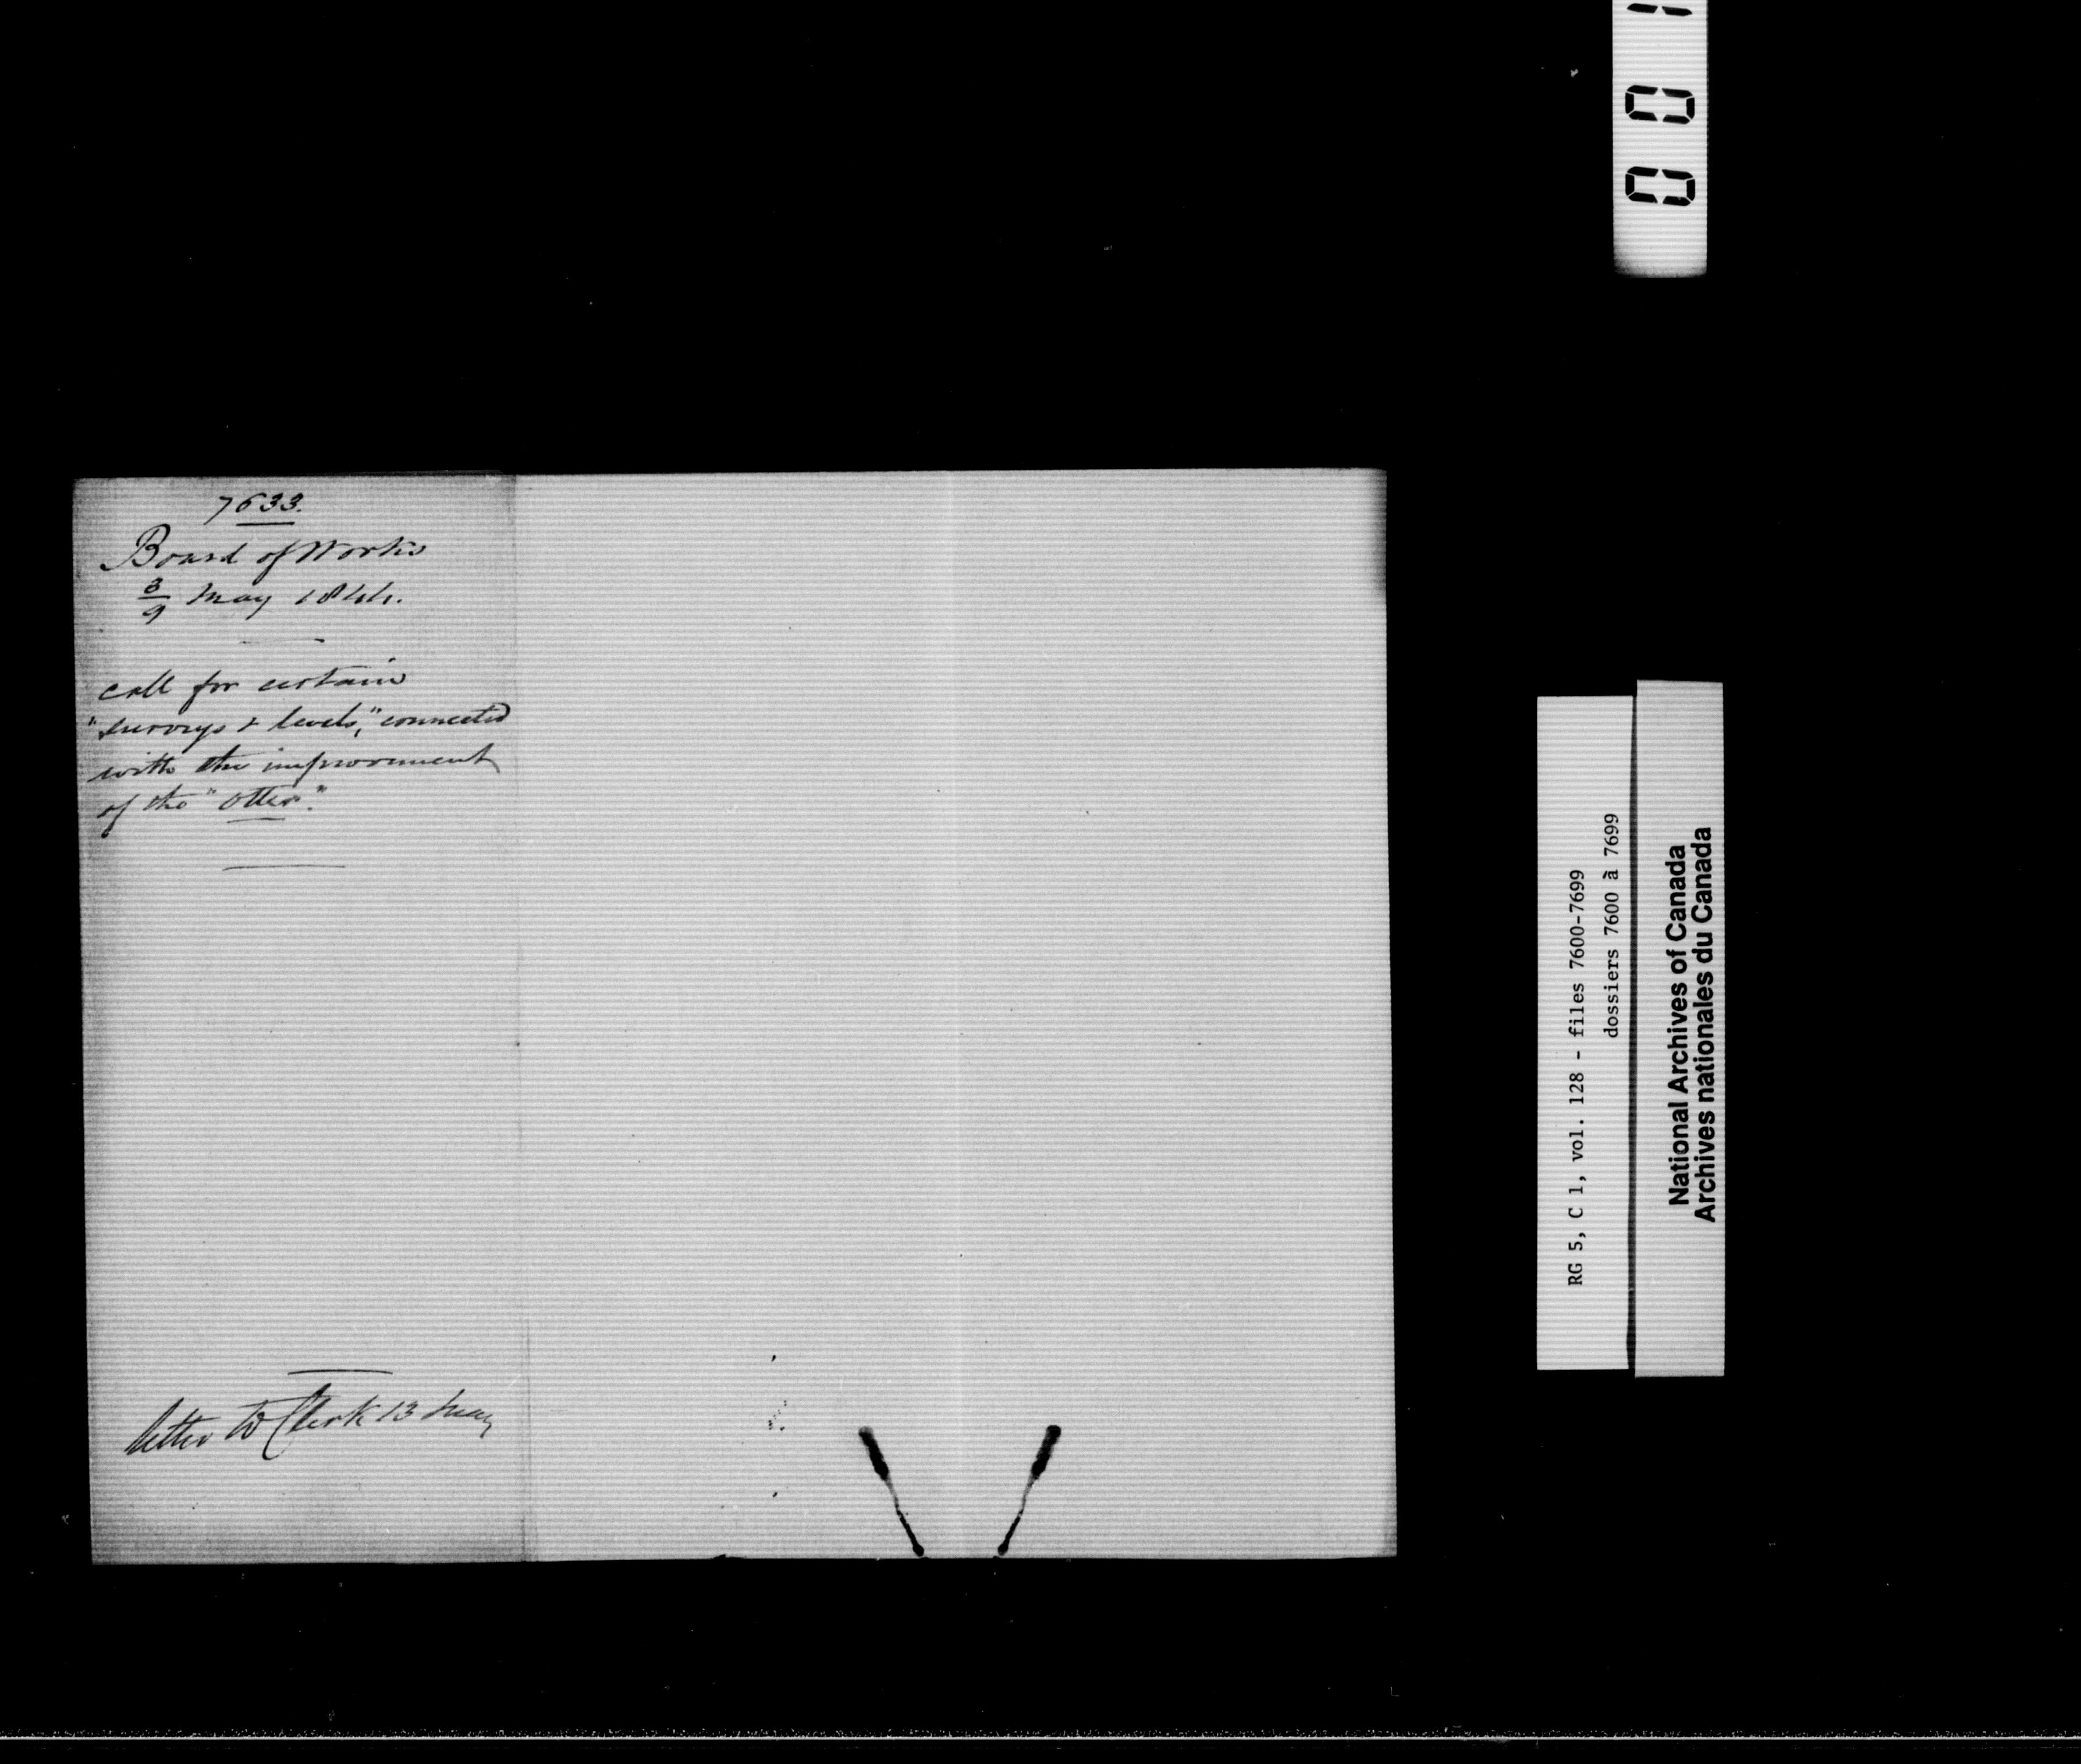 7633.
Board of Works
3/9 May 1844.
call for certain
"surveys & levels," connected
with the improvement
of the "Otter."
letter to Clerk 13 May
RG 5, C 1, vol. 128 - files 7600-7699
dossiers 7600 à 7699
National Archives of Canada
Archives nationales du Canada
0 0 1